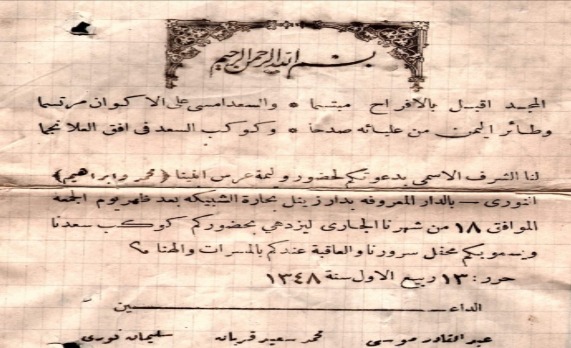 بسم الله الرحمن الرحيم
المجد اقبل بالافراح مبتسما * والسعد امسى على الاكوان مرتسما
وطائر اليمن من عليائه صدحا * وكوكب السعد في افق العلا نجما
لنا الشرف الاسمى بدعوتكم لحضور وليمة عرس اخينا (محمد وابراهيم)
النورى — بالدار المعروفه بدار زينل بحارة الشبيكه بعد ظهر يوم الجمعة
الموافق ١٨ من شهرنا الجارى ليزدهي بحضوركم كوكب سعدنا
ويسمو بكم محفل سرورنا والعاقبة عندكم بالمسرات والهنا
حرر: ١٣ ربيع الاول سنة ١٣٤٨
الداعـــين
عبد القادر موسى محمد سعيد قربان سليمان نورى